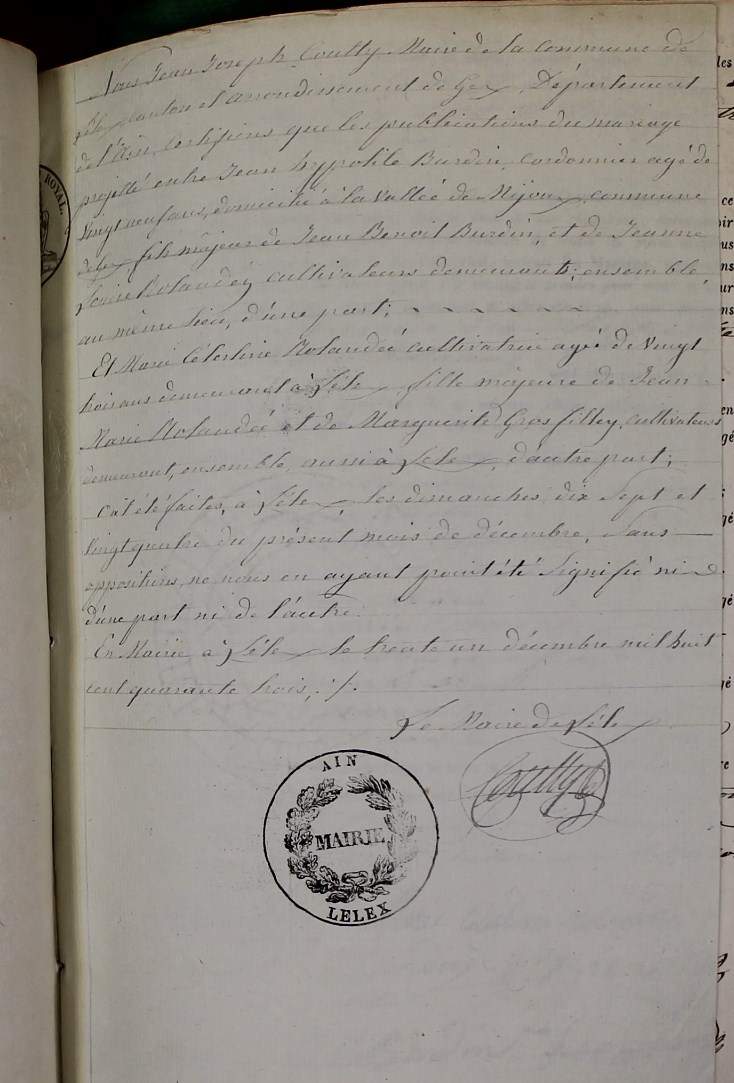 Nous Jean Joseph Coutty Maire de la Commune de
Lélex canton et arrondissement de Gex Département
de l'Ain, Certifions que les publications du mariage
projetté entre Jean hypolite Burdin, Cordonnier agé de
Vingt neuf ans, domicilié à la Vallée de Mijoux, commune
fils majeur de Jean Benoit Burdin, et de Jeanne
Rolandez cultivateurs demeurants, ensemble
au même lieu, d'une part;
Et Marie Célestine Rolandez cultivatrice agée de Vingt
trois ans demeurant à Lélex fille majeure de Jean
Marie Rolandez et de Marguerite Grosfilley, cultivateurs
demeurant, ensemble, aussi à Lélex, d'autre part;
ont été faites, à Lélex, les dimanches dix Sept et
Vingt quatre du présent mois de décembre, Sans
oppositions, ne nous en ayant point été Signifié ni
d'une part ni de l'autre.
En Mairie à Lélex le trente un décembre mil huit
cent quarante trois, ./.
Le Maire de Lélex
Coutty
AIN
MAIRIE
LELEX
ROYAL